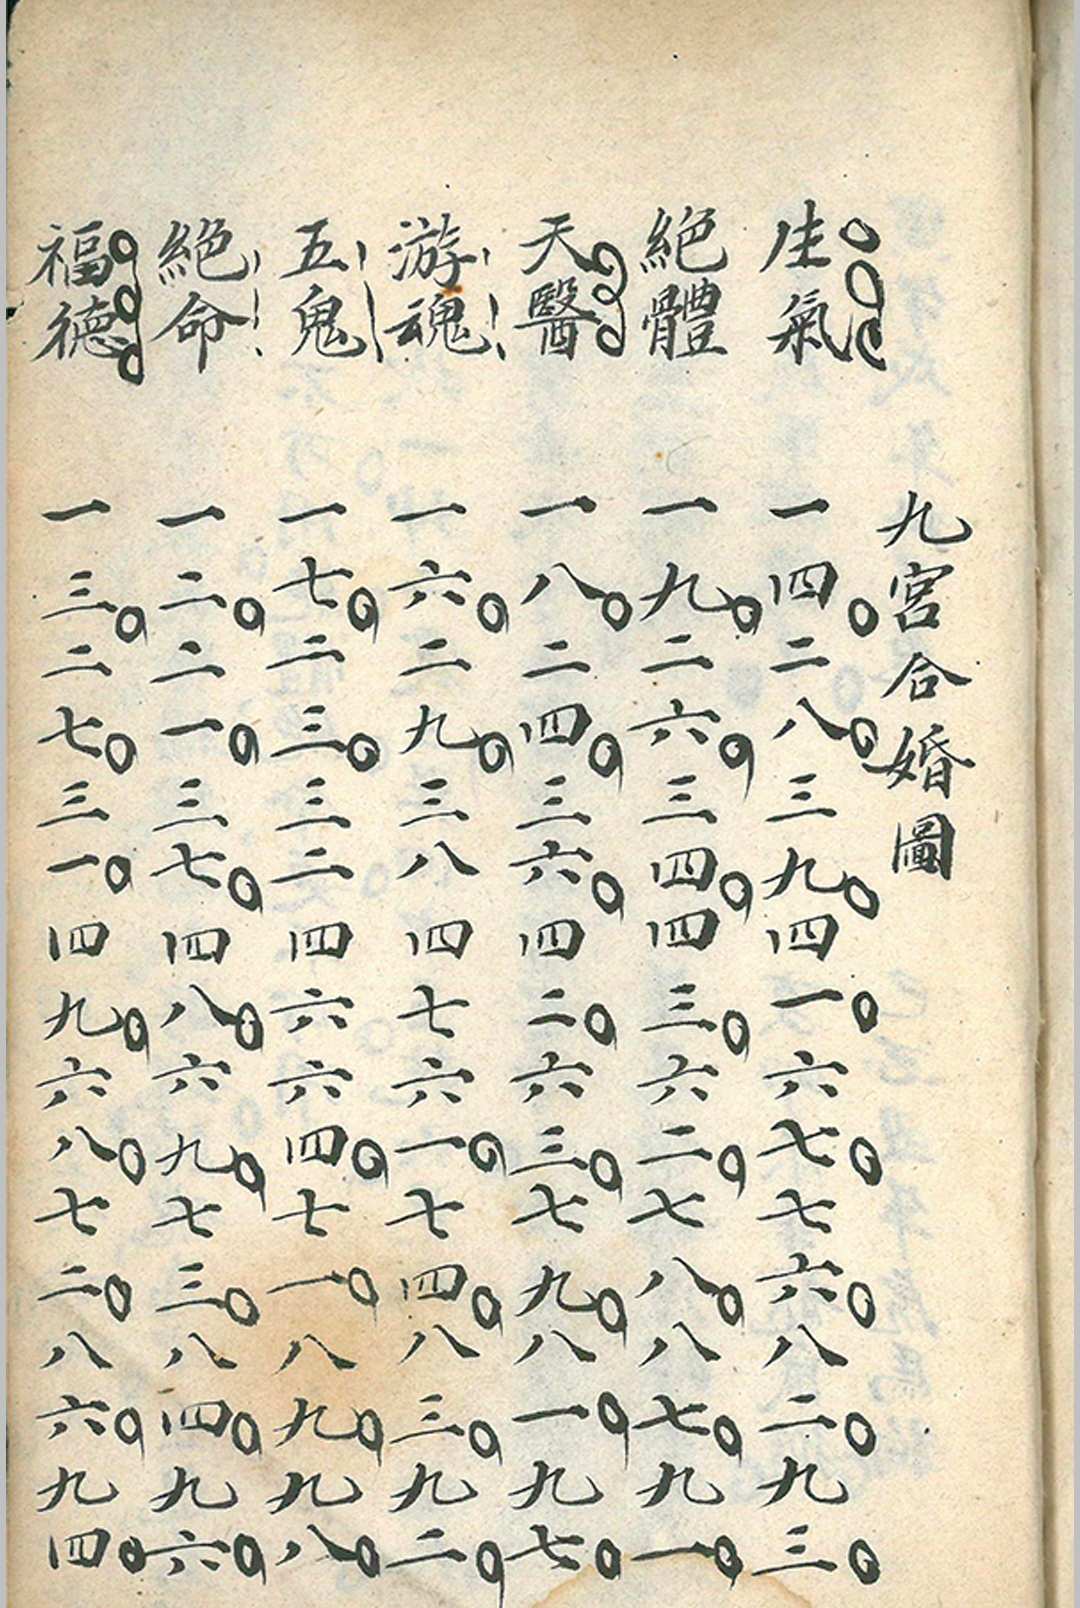 九宮合婚圖
生氣 一四。二八。三九。四一。六七。七六。八二。九三。
絕體 一九。二六。三四。四三。六二。七八。八七。九一。
天醫 一八。二四。三六。四二。六三。七九。八一。九七。
游魂 一六。二九。三八四七六一。七四。八三。九二。
五鬼 一七。二三。三二四六六四。七一。八九。九八。
絕命 一二。二一。三七。四八。六九。七三。八四。九六。
福德 一三。二七。三一。四九。六八。七二。八六。九四。